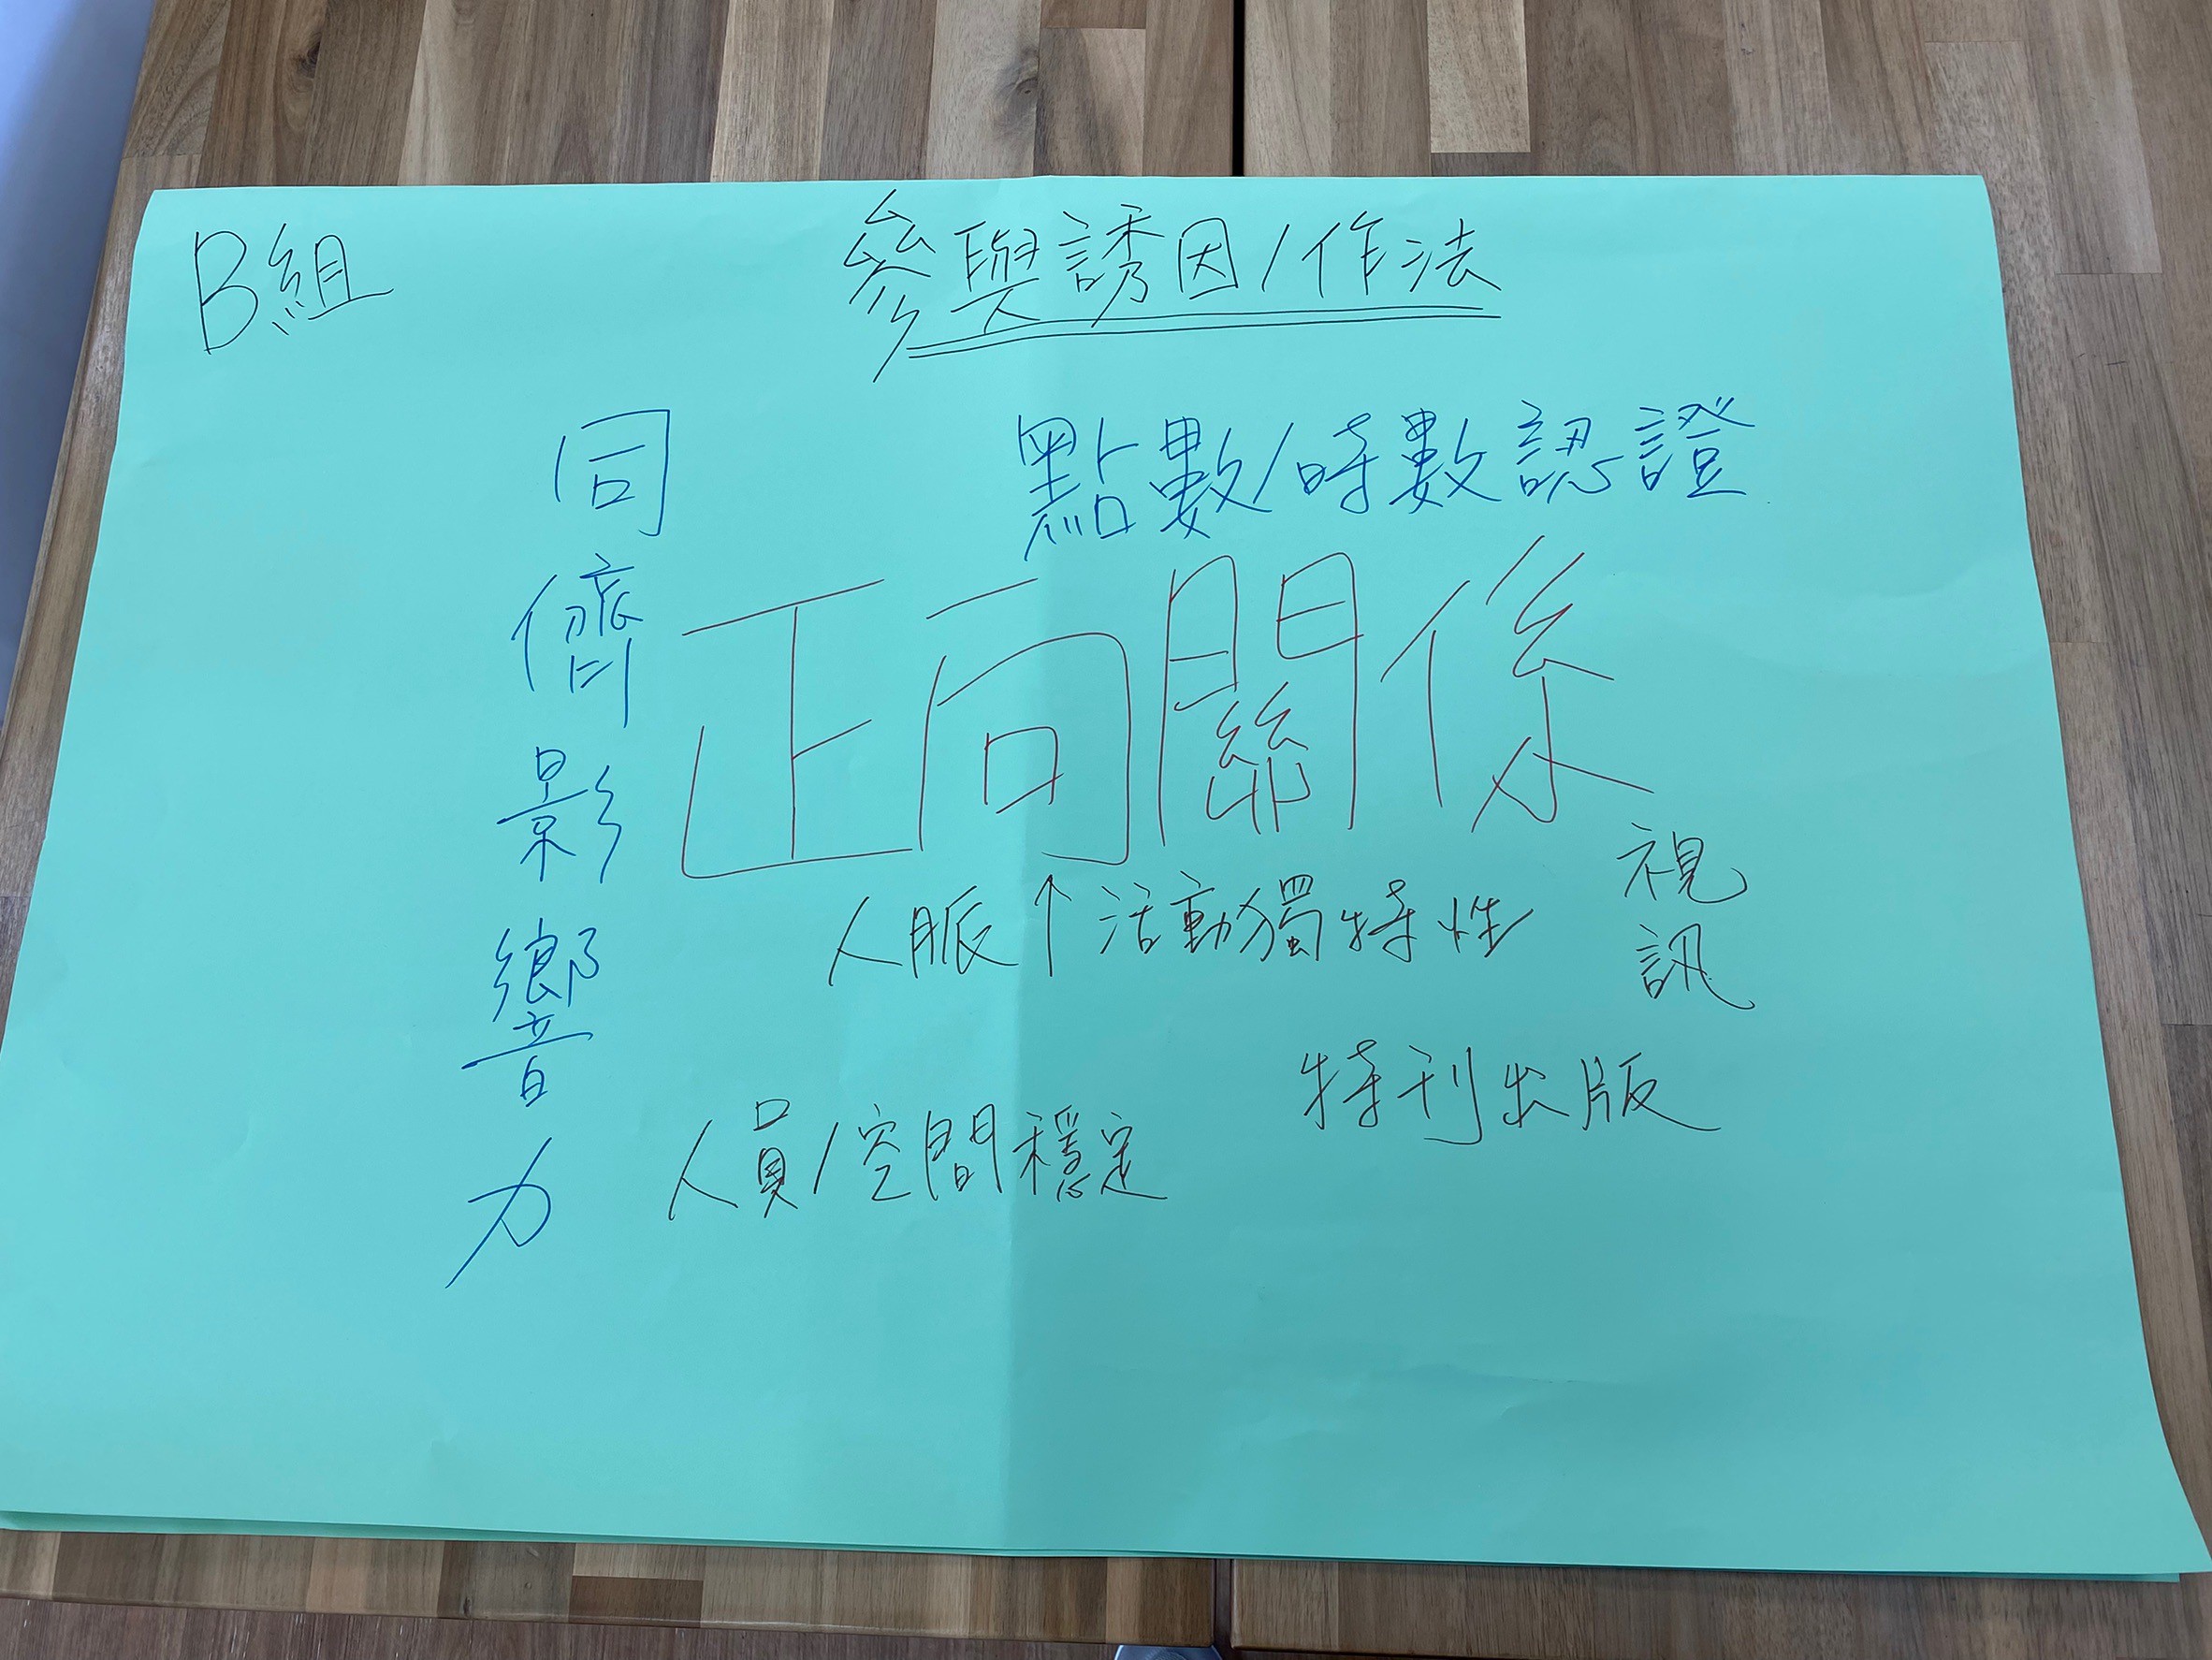 B組
參與誘因/作法
同儕影響力
點數/時數認證
正向關係
人脈↑活動獨特性
視訊
特刊出版
人員/空間穩定